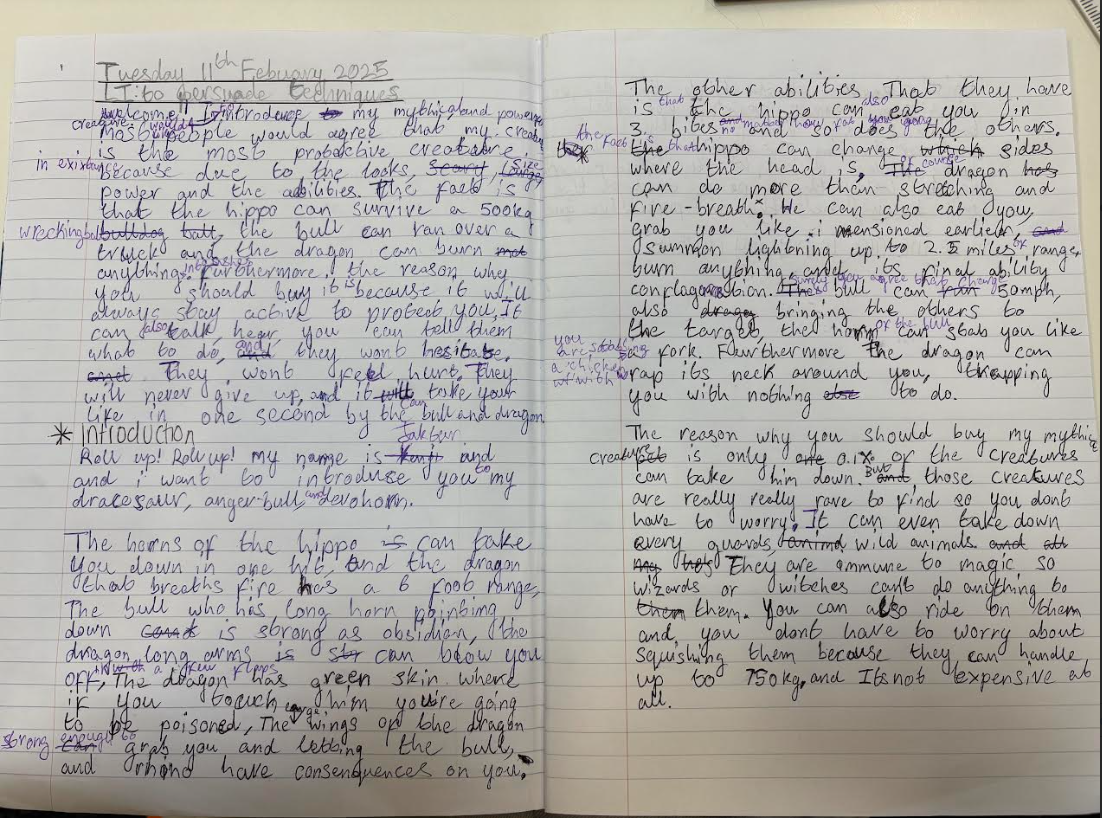 Tuesday 11th Febuary 2025
LT: to persuade techniques
Welcome! I introduce to my mythic and power
creature. Most people would agree that my creature
is the most protective creature
in existance because due to the looks, Size
power and the abilities. The fact is
that the hippo can survive a 500kg
wreckingball, the bull can ran over a
truck and the dragon can burn
anything. Furthermore, the reason why
you should buy it is because it will
always stay active to protect you, It
can also talk, hear, you can tell them
what to do, and they wont hesitate,
They wont feel hurt, They
will never give up, and it can take your
life in one second by the bull and dragon
* Introduction
Roll up! Roll up! my name is and
and i want to introduse you to my
dracosaur, anger-bull, and devohorn.
The horns of the hippo is can take
you down in one hit, and the dragon
that breaths fire has a 6 foot range,
The bull who has long horn pointing
down is strong as obsidian, the
dragon long arms can blow you
off, with a few flaps The dragon has green skin where
if you touch him you're going
to be poisoned, The wings of the dragon
strong enough to grab you and letting the bull,
and rhino have consenquences on you.
The other abilities That they have
is that the hippo can also eat you in
3 bites no matter how fat you and so does the others.
the fact is that hippo can change sides
where the head is, Of course dragon
can do more than stretching and
fire-breath. He can also eat you,
grab you like i mensioned earlier,
summon lightening up to 2.5 miles of range,
burn anything and its final ability
conflagration. Surely you agree that bull can charge 50mph,
also bringing the others to
the target, the horn of the bull can stab you like
a fork. Fuurthermore the dragon can
wrap its neck around you, trapping
you with nothing to do.
The reason why you should buy my mythic
creature is only 0.1% of the creatures
can take him down. But those creatures
are really really rare to find so you dont
have to worry. It can even take down
every guards, wild animals
They are ammune to magic so
wizards or witches cant do anything to
them. You can also ride on them
and you dont have to worry about
squishing them because they can handle
up to 750kg, and Its not expensive at
all.